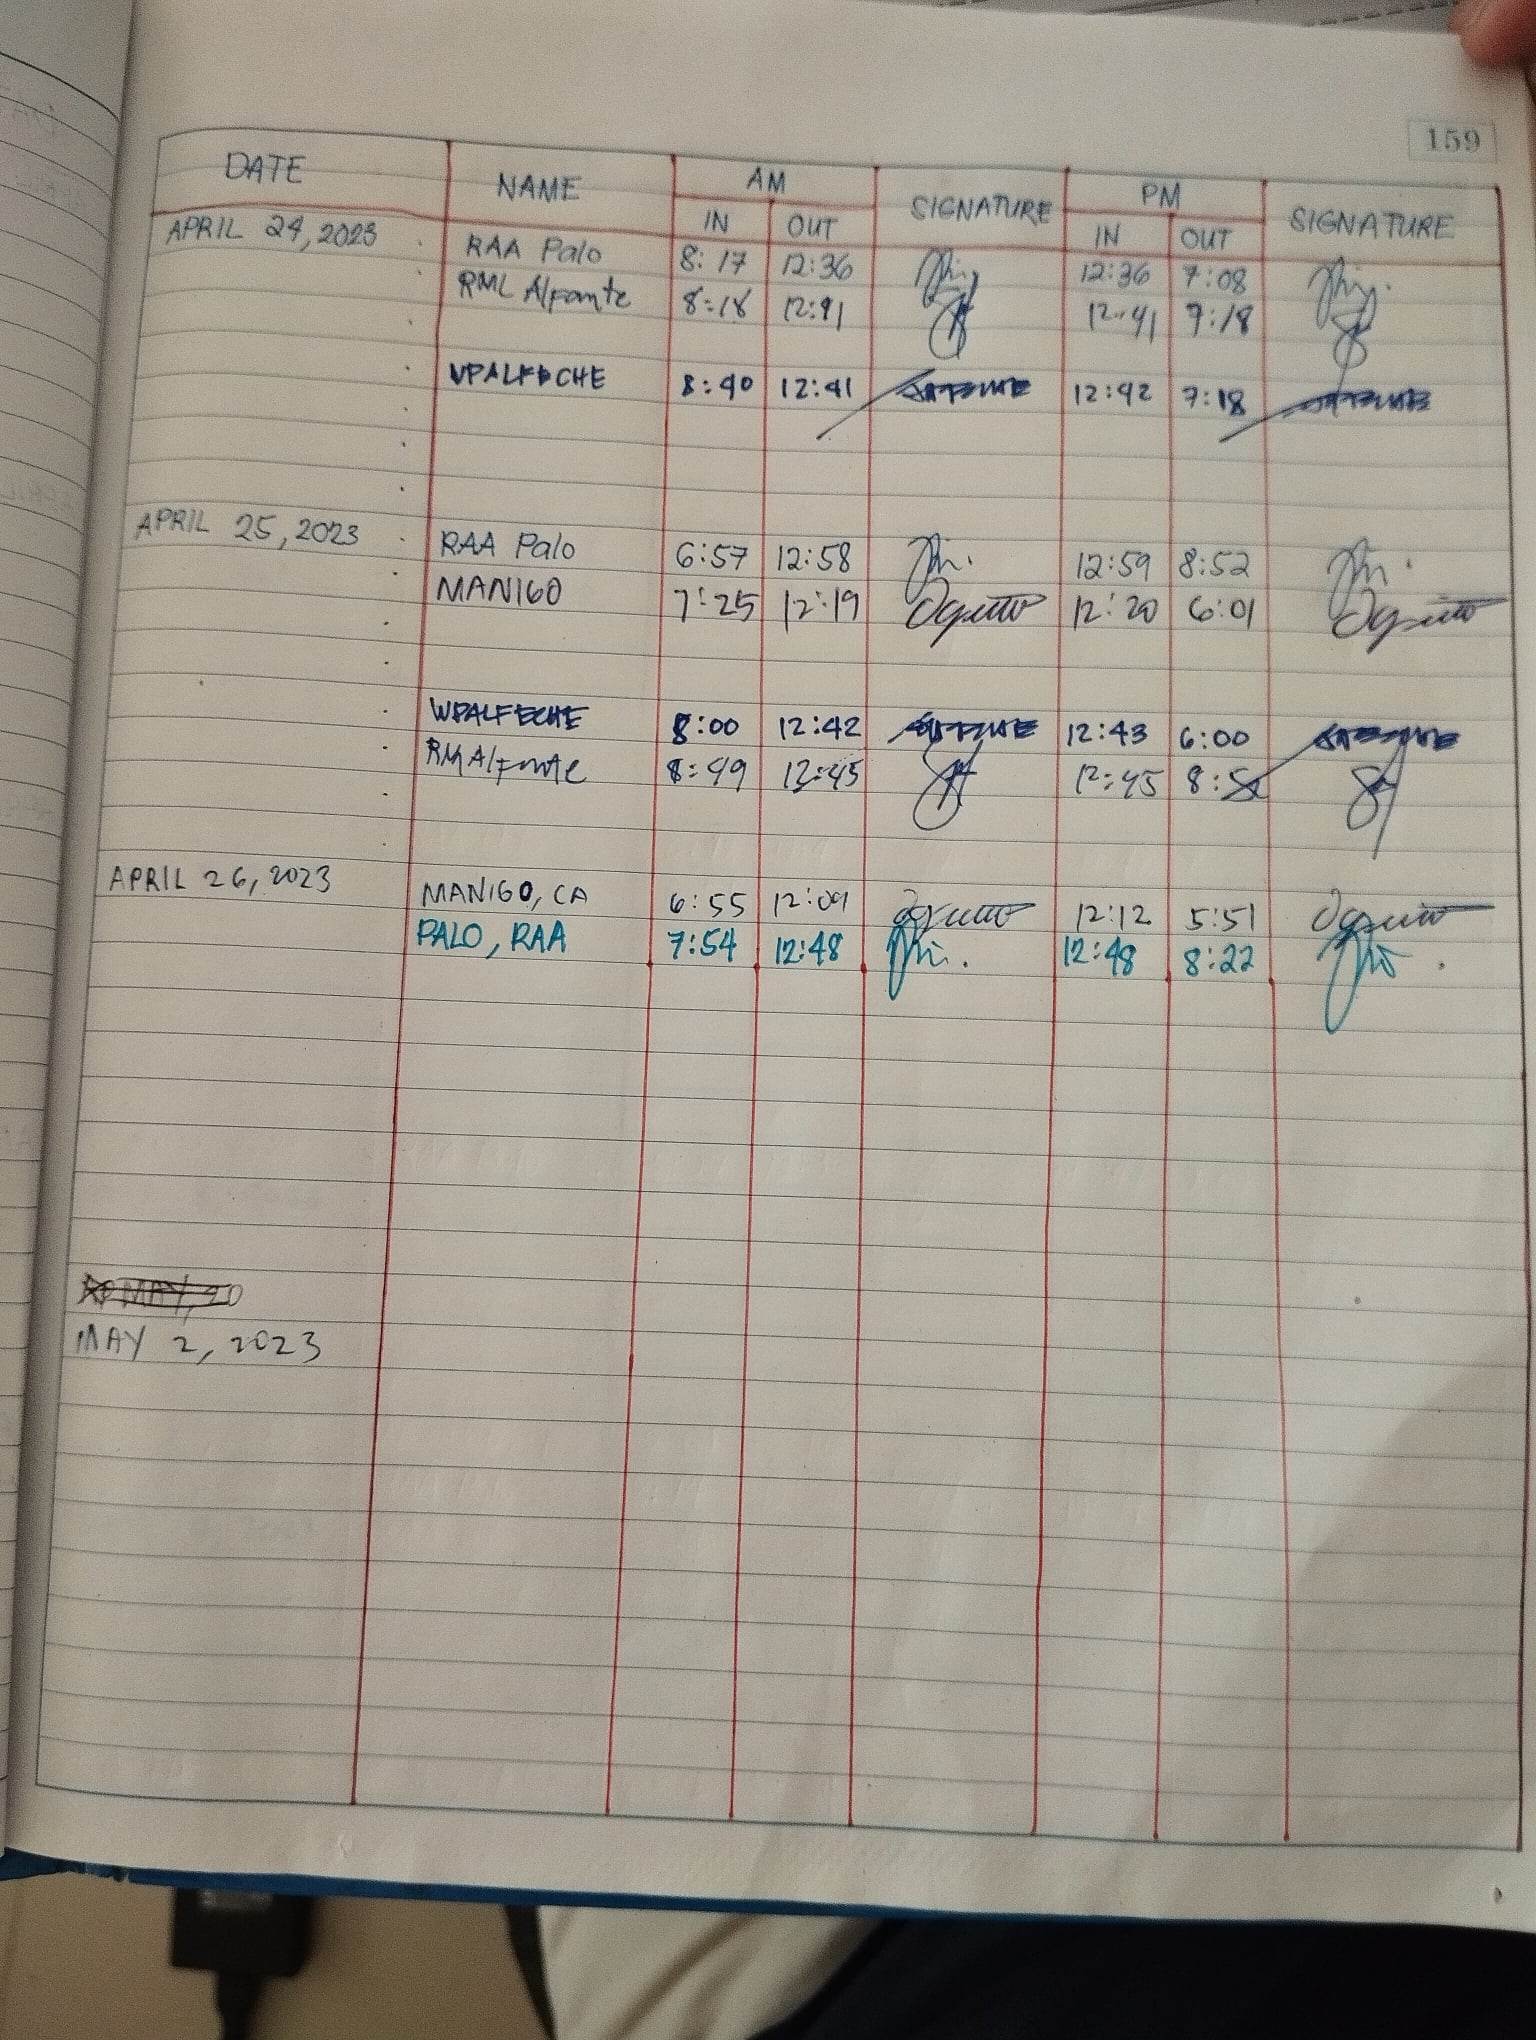 159
DATE NAME AM SIGNATURE PM SIGNATURE
IN OUT IN OUT
APRIL 24, 2023 RAA Palo 8:17 12:36 12:36 7:08
RML Alfante 8:18 12:41 12:41 7:18
8:40 12:41 12:42 7:18
APRIL 25, 2023 RAA Palo 6:57 12:58 12:59 8:52
MANIGO 7:25 12:19 12:20 6:01
WPALFECHE 8:00 12:42 12:43 6:00
RMAlfante 8:49 12:45 12:45
APRIL 26, 2023 MANIGO, CA 6:55 12:09 12:12 5:51
PALO, RAA 7:54 12:48 12:48 8:22
MAY 2, 2023